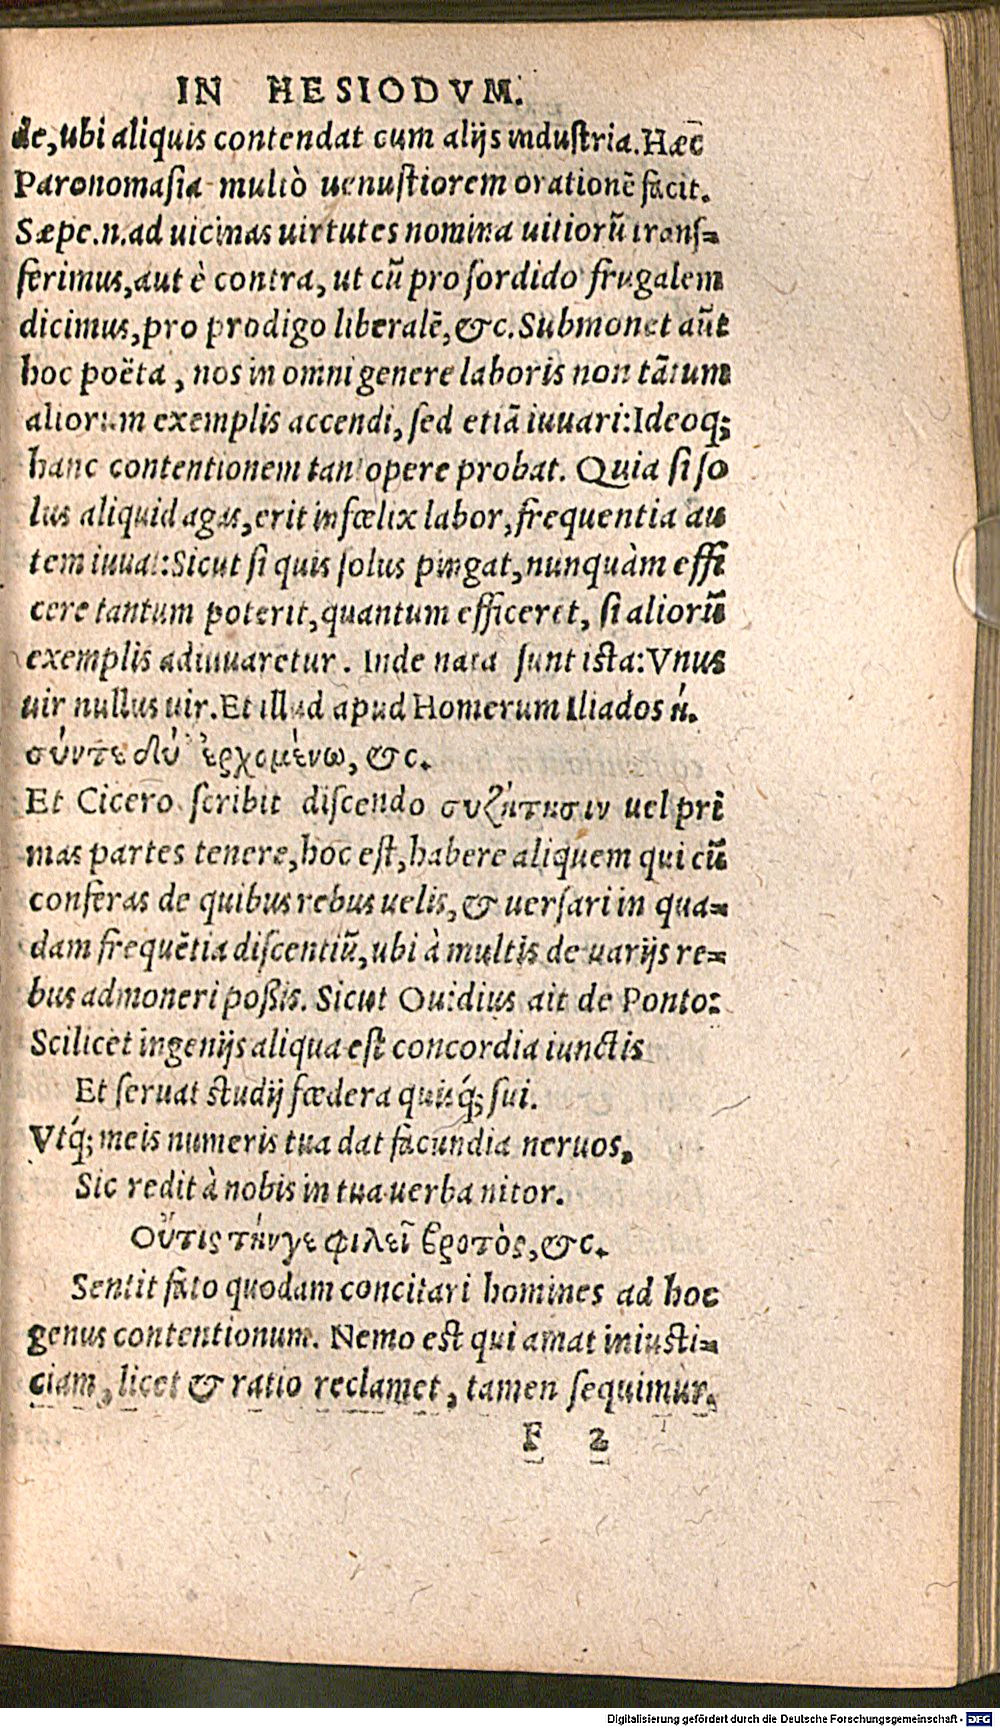 IN HESIODVM.
de, ubi aliquis contendat cum alijs industria. Hæc̄
Paronomasia multò uenustiorem orationẽ facit.
Sæpe.n.ad uicinas uirtutes nomina uitiorũ trans⸗
ferimus, aut è contra, ut cũ pro sordido frugalem
dicimus, pro prodigo liberalẽ, &c. Submonet aũt
hoc poëta, nos in omni genere laboris non tãtum
aliorum exemplis accendi, sed etiã iuuari: Ideoq;
hanc contentionem tan opere probat. Quia si so
lus aliquid agas, erit infœlix labor, frequentia au
tem iuuat: Sicut si quis solus pingat, nunquàm effi
cere tantum poterit, quantum efficeret, si aliorũ
exemplis adiuuaretur. Inde nata sunt ista: Vnus
uir nullus uir. Et illud apud Homerum Iliados ή.
σύντε δύ' ἐρχομένω, &c.
Et Cicero scribit discendo συζήτησιν uel pri
mas partes tenere, hoc est, habere aliquem qui cũ
conferas de quibus rebus uelis, & uersari in qua⸗
dam frequẽtia discentiũ, ubi à multis de uarijs re⸗
bus admoneri poßis. Sicut Ouidius ait de Ponto:
Scilicet ingenijs aliqua est concordia iunctis
Et seruat studij fœdera quisq́; sui.
Vtq́; meis numeris tua dat facundia neruos,
Sic redit à nobis in tua uerba nitor.
Οὔτις τήνγε φιλεῖ βροτὸς, &c.
Sentit fato quodam concitari homines ad hoc
genus contentionum. Nemo est qui amat iniusti⸗
ciam, licet & ratio reclamet, tamen sequimur,
F 2
Digitalisierung gefördert durch die Deutsche Forschungsgemeinschaft - DFG